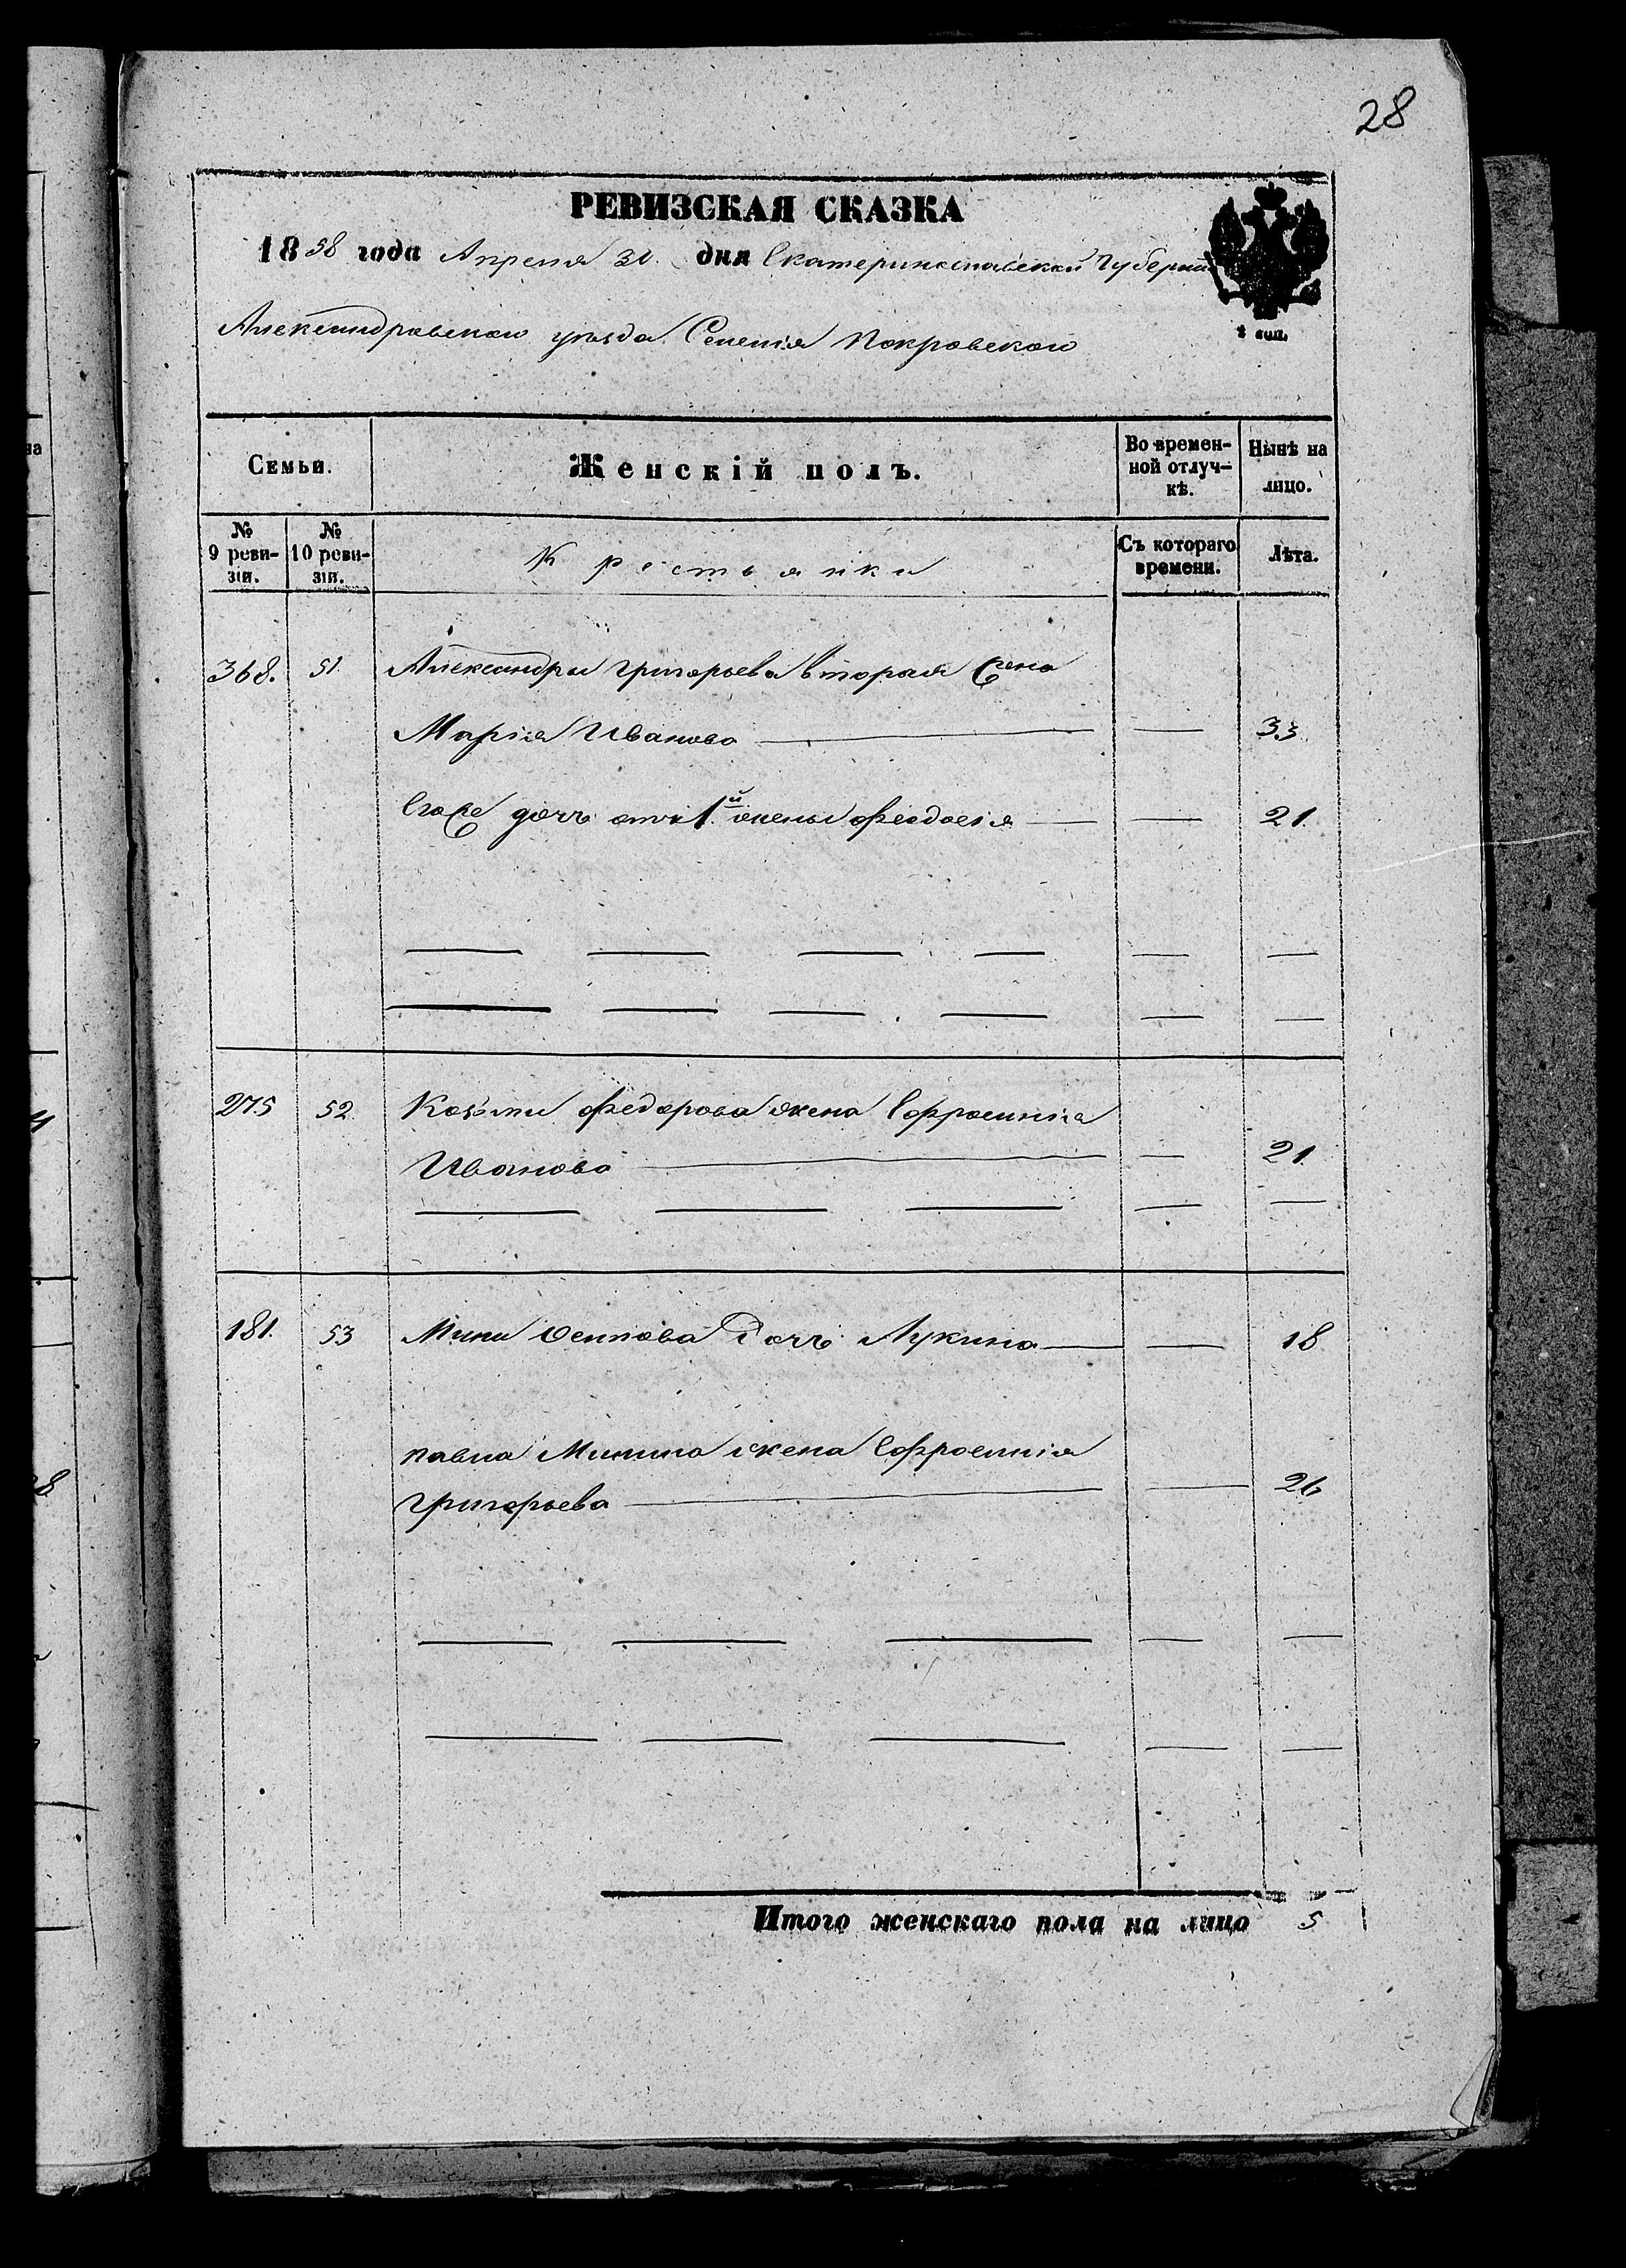 28
РЕВИЗСКАЯ СКАЗКА
1858 года Апреля 30. дня Екатеринославской Губерніи
Александровскаго уѣзда Селенія Покровскаго
2 коп.
Семьи.
Женскій полъ.
Во времен-
ной отлуч-
кѣ.
Нынѣ на
лицо.
№
9 реви-
зіи.
№
10 реви-
зіи.
Крестьянки
Съ котораго
времени.
Лѣта.
368. 51. Александры Григорьева вторая жена
Марія Иванова 33
Егоже дочь отъ 1й жены Феодосія 21.
275 52. Козьмы Федорова жена Ефросинія
Иванова 21.
181. 53 Мины Осипова дочь Лукина 18
Павла Минина жена Ефросинія
Григорьева 26
Итого женскаго пола на лицо 5